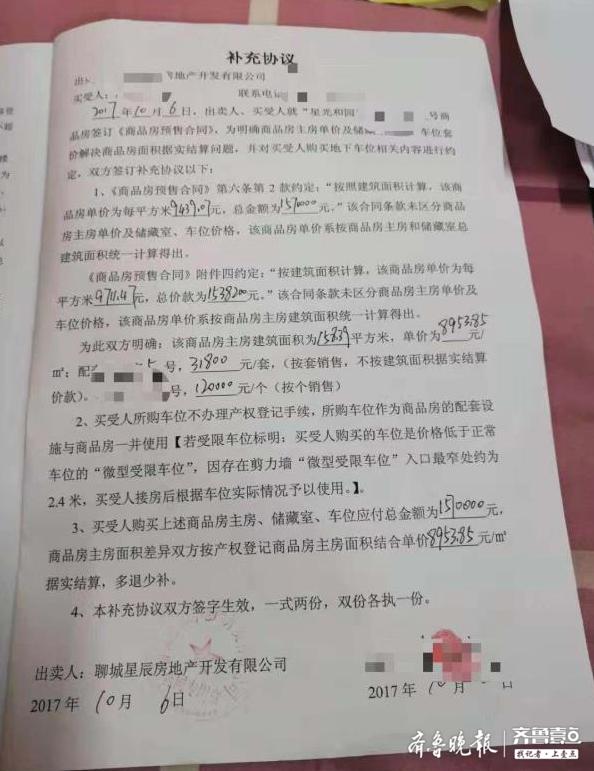 补充协议
房地产开发有限公司
买受人:
联系电话
2017年10月6日,出卖人、买受人就“星光和园
号商
品房签订《商品房预售合同》,为明确商品房主房单价及储
车位套
价解决商品房面积据实结算问题,并对买受人购买地下车位相关内容进行约
定,双方签订补充协议以下:
1、《商品房预售合同》第六条第2款约定:“按照建筑面积计算,该商
品房单价为每平方米9439.07元,总金额为1570000元。”该合同条款未区分商品
房主房单价及储藏室、车位价格,该商品房单价系按商品房主房和储藏室总
建筑面积统一计算得出。
《商品房预售合同》附件四约定:“按建筑面积计算,该商品房单价为每
平方米9711.47元,总价款为1538200元。”该合同条款未区分商品房主房单价及
车位价格,该商品房单价系按商品房主房建筑面积统一计算得出。
为此双方明确:该商品房主房建筑面积为158.39平方米,单价为8953.85元/
㎡;配
号,31800元/套,(按套销售,不按建筑面积据实结算
价款)。
号,120000元/个(按个销售)
2、买受人所购车位不办理产权登记手续,所购车位作为商品房的配套设
施与商品房一并使用【若受限车位标明:买受人购买的车位是价格低于正常
车位的“微型受限车位”,因存在剪力墙“微型受限车位”入口最窄处约为
2.4米,买受人接房后根据车位实际情况予以使用。】。
3、买受人购买上述商品房主房、储藏室、车位应付总金额为1570000元,
商品房主房面积差异双方按产权登记商品房主房面积结合单价8953.85元/㎡
据实结算,多退少补。
4、本补充协议双方签字生效,一式两份,双份各执一份。
出卖人:聊城星辰房地产开发有限公司
2017年10月6日
2017年10月
日
齐鲁晚报
齐鲁壹点
找记者·上壹点